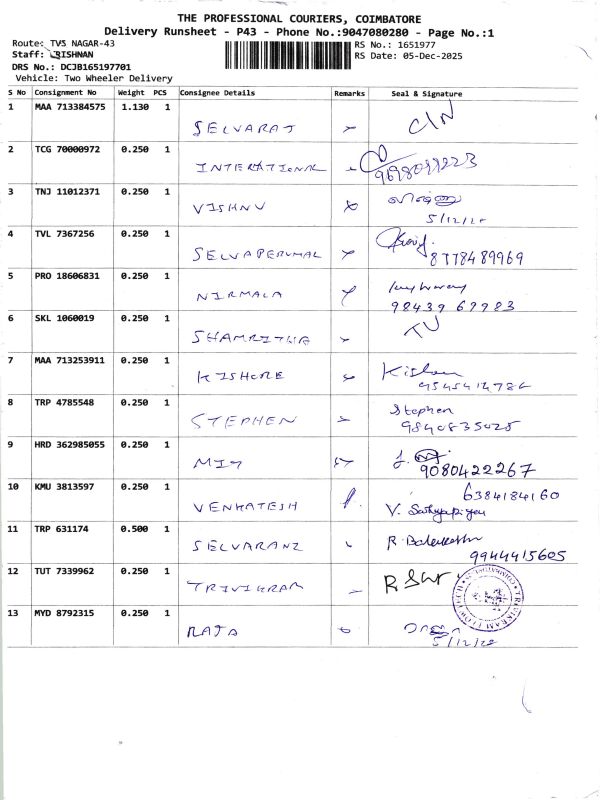 THE PROFESSIONAL COURIERS, COIMBATORE
Delivery Runsheet - P43 - Phone No.:9047080280 - Page No.:1
Route: TVS NAGAR-43
RS No.: 1651977
Staff: KRISHNAN
RS Date: 05-Dec-2025
DRS No.: DCJB165197701
Vehicle: Two Wheeler Delivery
S No Consignment No Weight PCS Consignee Details Remarks Seal & Signature
1 MAA 713384575 1.130 1
SELVARAJ
2 TCG 70000972 0.250 1
INTERNATIONAL
3 TNJ 11012371 0.250 1
VISHNU
5/12/25
4 TVL 7367256 0.250 1
SELVAPERUMAL 8778489969
5 PRO 18606831 0.250 1
NIRMALA 98439 67983
6 SKL 1060019 0.250 1
SHAMRITHA
7 MAA 713253911 0.250 1
KISHORE Kishore
8 TRP 4785548 0.250 1
STEPHEN Stephen
9840835025
9 HRD 362985055 0.250 1
9080422267
10 KMU 3813597 0.250 1 6384184160
VENKATESH V. Sathyapriya
11 TRP 631174 0.500 1
9944415605
12 TUT 7339962 0.250 1
TRIVIKRAM
13 MYD 8792315 0.250 1
RAJA
5/12/25